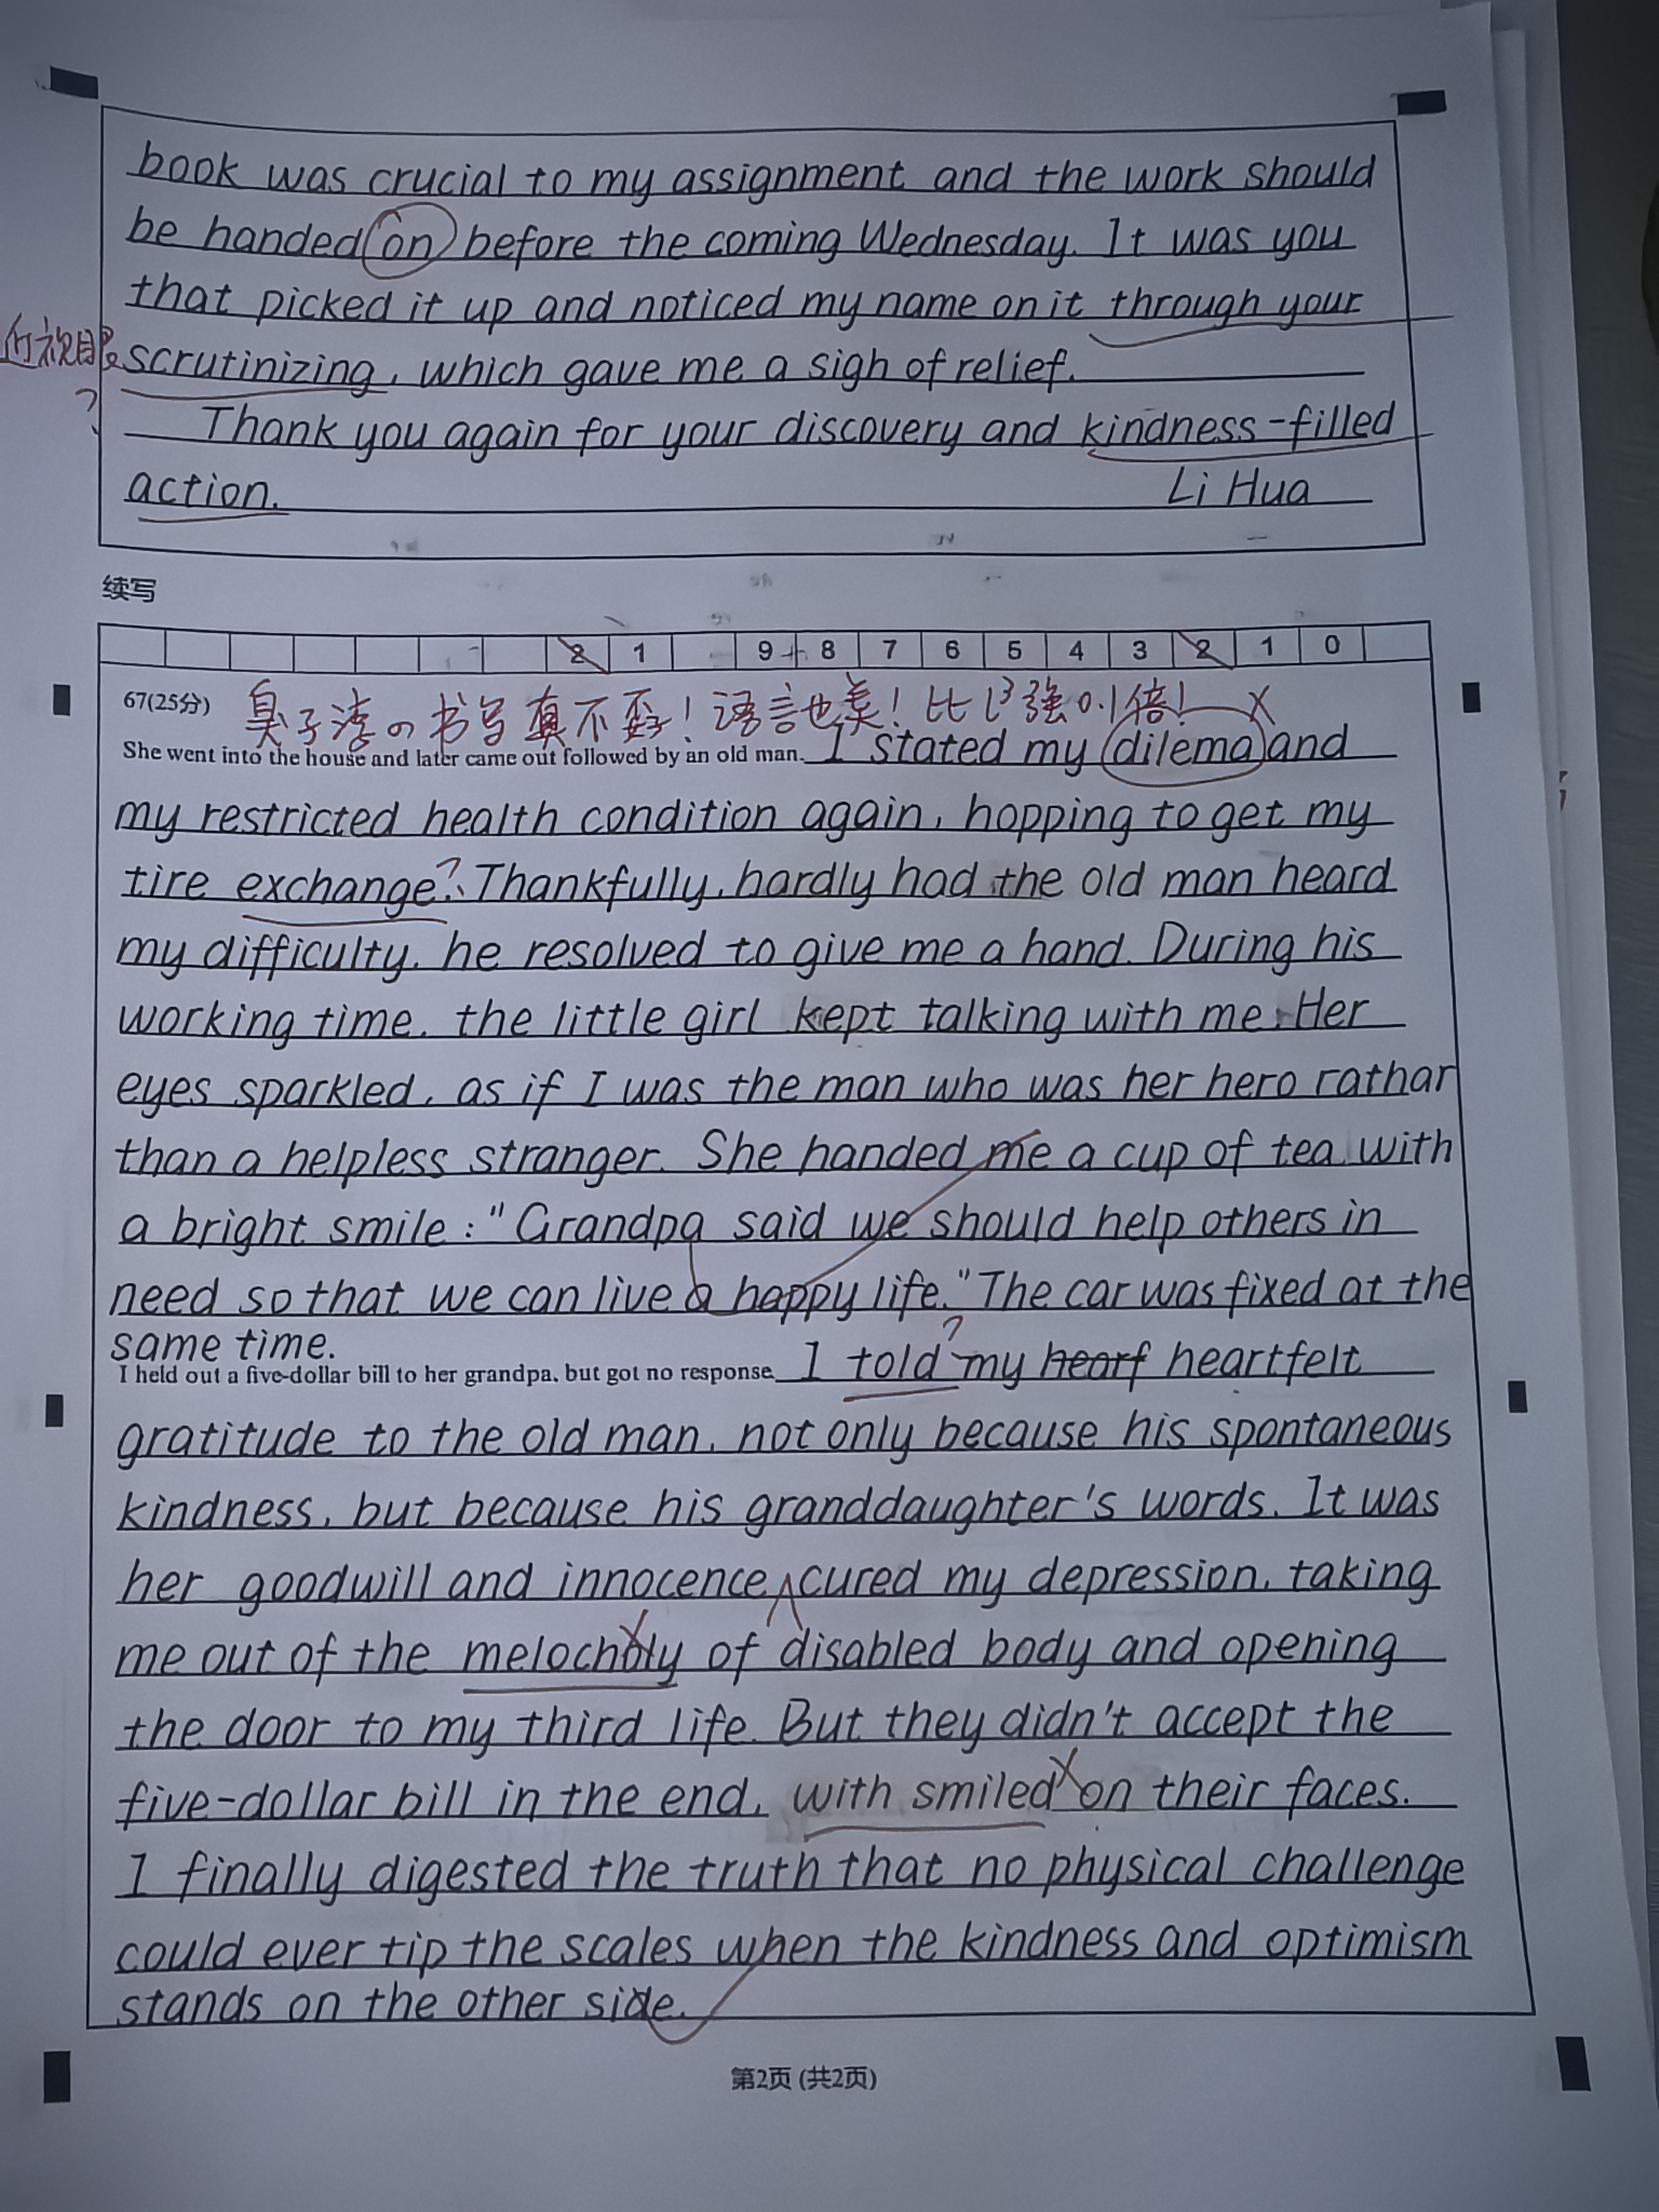 book was crucial to my assignment and the work should
be handed on before the coming Wednesday. It was you
that picked it up and noticed my name on it through your
近视眼
?
scrutinizing, which gave me a sigh of relief.
Thank you again for your discovery and kindness-filled
action. Li Hua
续写
2 1 9 + 8 7 6 5 4 3 2 1 0
67(25分)
臭子淳の书写真不孬！语言也美！比 强0.1倍！
She went into the house and later came out followed by an old man. I stated my dilema and
my restricted health condition again, hopping to get my
tire exchange. Thankfully, hardly had the old man heard
my difficulty, he resolved to give me a hand. During his
working time, the little girl kept talking with me. Her
eyes sparkled, as if I was the man who was her hero rathar
than a helpless stranger. She handed me a cup of tea with
a bright smile: "Grandpa said we should help others in
need so that we can live a happy life." The car was fixed at the
same time.
I held out a five-dollar bill to her grandpa, but got no response. I told my hearf heartfelt
gratitude to the old man, not only because his spontaneous
kindness, but because his granddaughter's words. It was
her goodwill and innocence cured my depression, taking
me out of the melocholy of disabled body and opening
the door to my third life. But they didn't accept the
five-dollar bill in the end, with smiled on their faces.
I finally digested the truth that no physical challenge
could ever tip the scales when the kindness and optimism
stands on the other side.
第2页 (共2页)